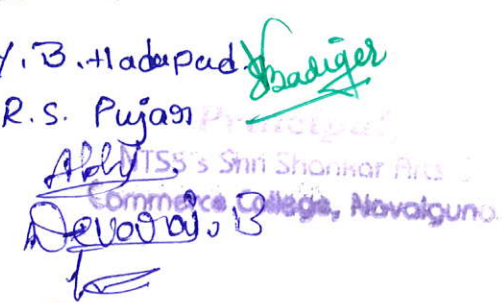 Y. B. Hadapad. Badiger
R. S. Pujar
Principal
MTSS's Shri Shankar Arts &
Commerce College, Navalgund
Devaraj. B